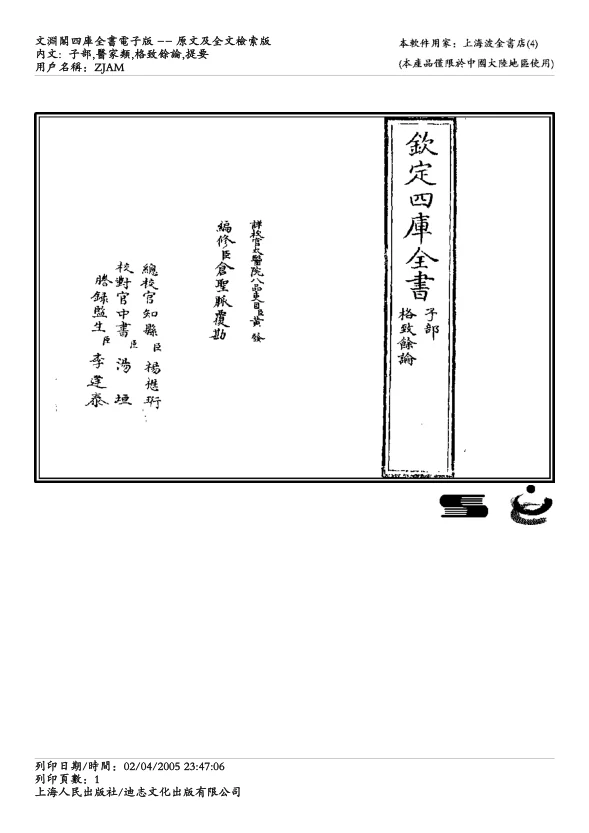 文淵閣四庫全書電子版 −− 原文及全文檢索版
內文: 子部,醫家類,格致餘論,提要
用戶名稱: ZJAM
本軟件用家: 上海波金書店(4)
(本產品僅限於中國大陸地區使用)
欽定四庫全書
子部
格致餘論
詳校官太醫院八品吏目臣黃發
編修臣倉聖脈覆勘
總校官知縣臣楊懋珩
校對官中書臣湯垣
謄錄監生臣李蓬泰
列印日期/時間: 02/04/2005 23:47:06
列印頁數: 1
上海人民出版社/迪志文化出版有限公司